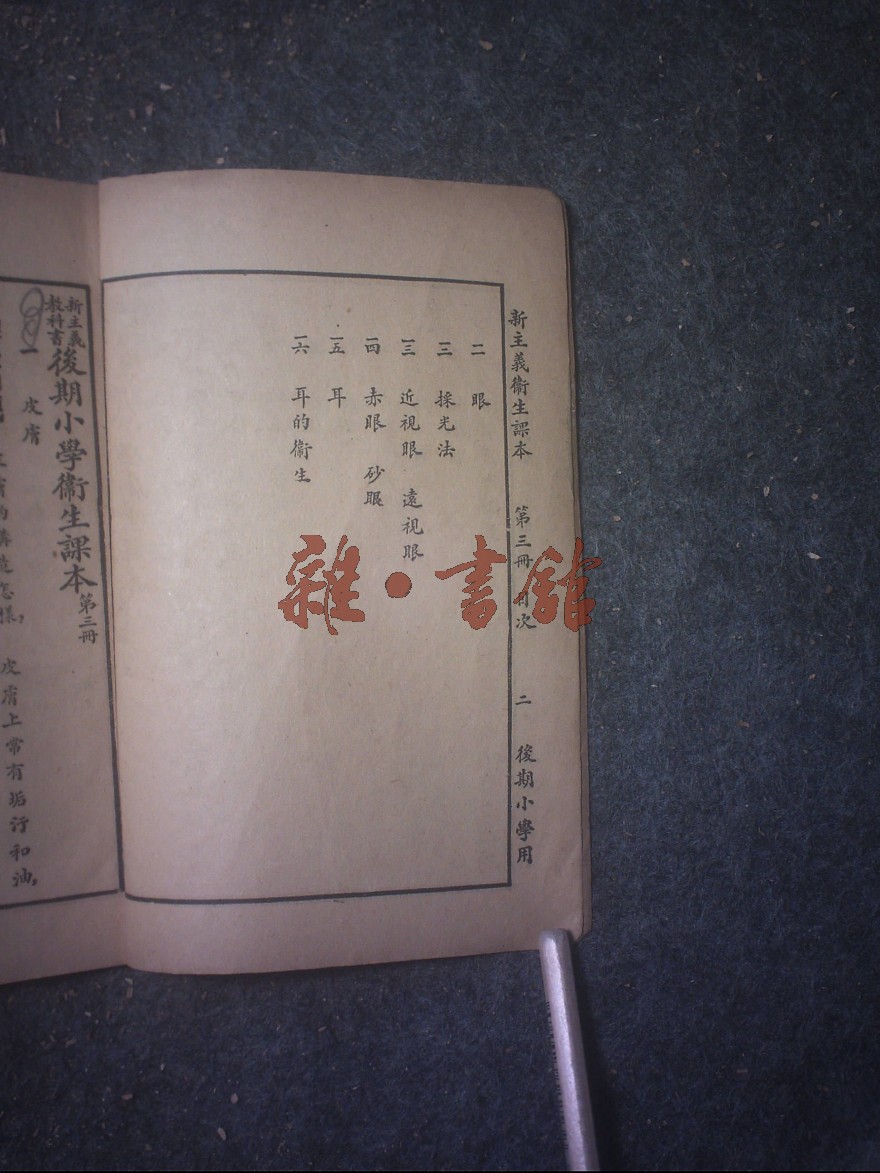 新主義衞生課本 第三冊 目次 二 後期小學用
一一 眼
一二 採光法
一三 近視眼 遠視眼
一四 赤眼 砂眼
一五 耳
一六 耳的衞生
新主義教科書 後期小學衞生課本 第三冊
一 皮膚
膚的構造怎樣, 皮膚上常有垢汙和油,
雜·書館